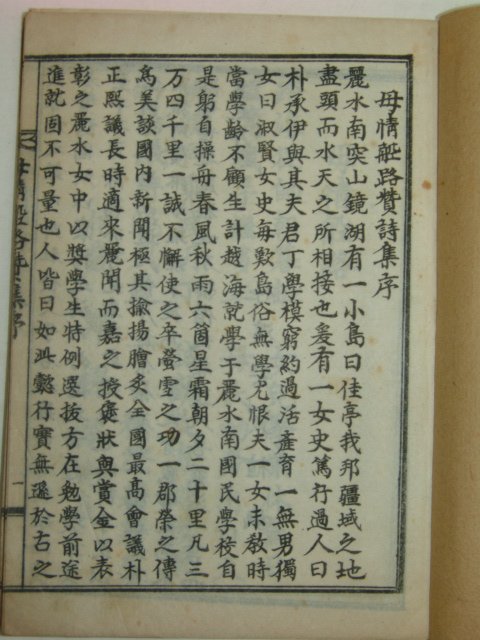 母情艇路贊詩集序
麗水南突山鏡湖有一小島曰佳亭我邦疆域之地
盡頭而水天之所相接也爰有一女史篤行過人曰
朴承伊與其夫君丁學模窮約過活產育一無男獨
女曰淑賢女史每歎島俗無學尤恨夫一女未敎時
當學齡不顧生計越海就學于麗水南國民學校自
是躬自操舟春風秋雨六箇星霜朝夕二十里凡三
万四千里一誠不懈使之卒螢雪之功一郡榮之傳
爲美談國內新聞極其揄揚膾炙全國最高會議朴
正熙議長時適來麗聞而嘉之授褒狀與賞金以表
彰之麗水女中以奬學生特例選拔方在勉學前途
進就固不可量也人皆曰如此懿行實無遜於古之
母情艇路贊詩集序
一